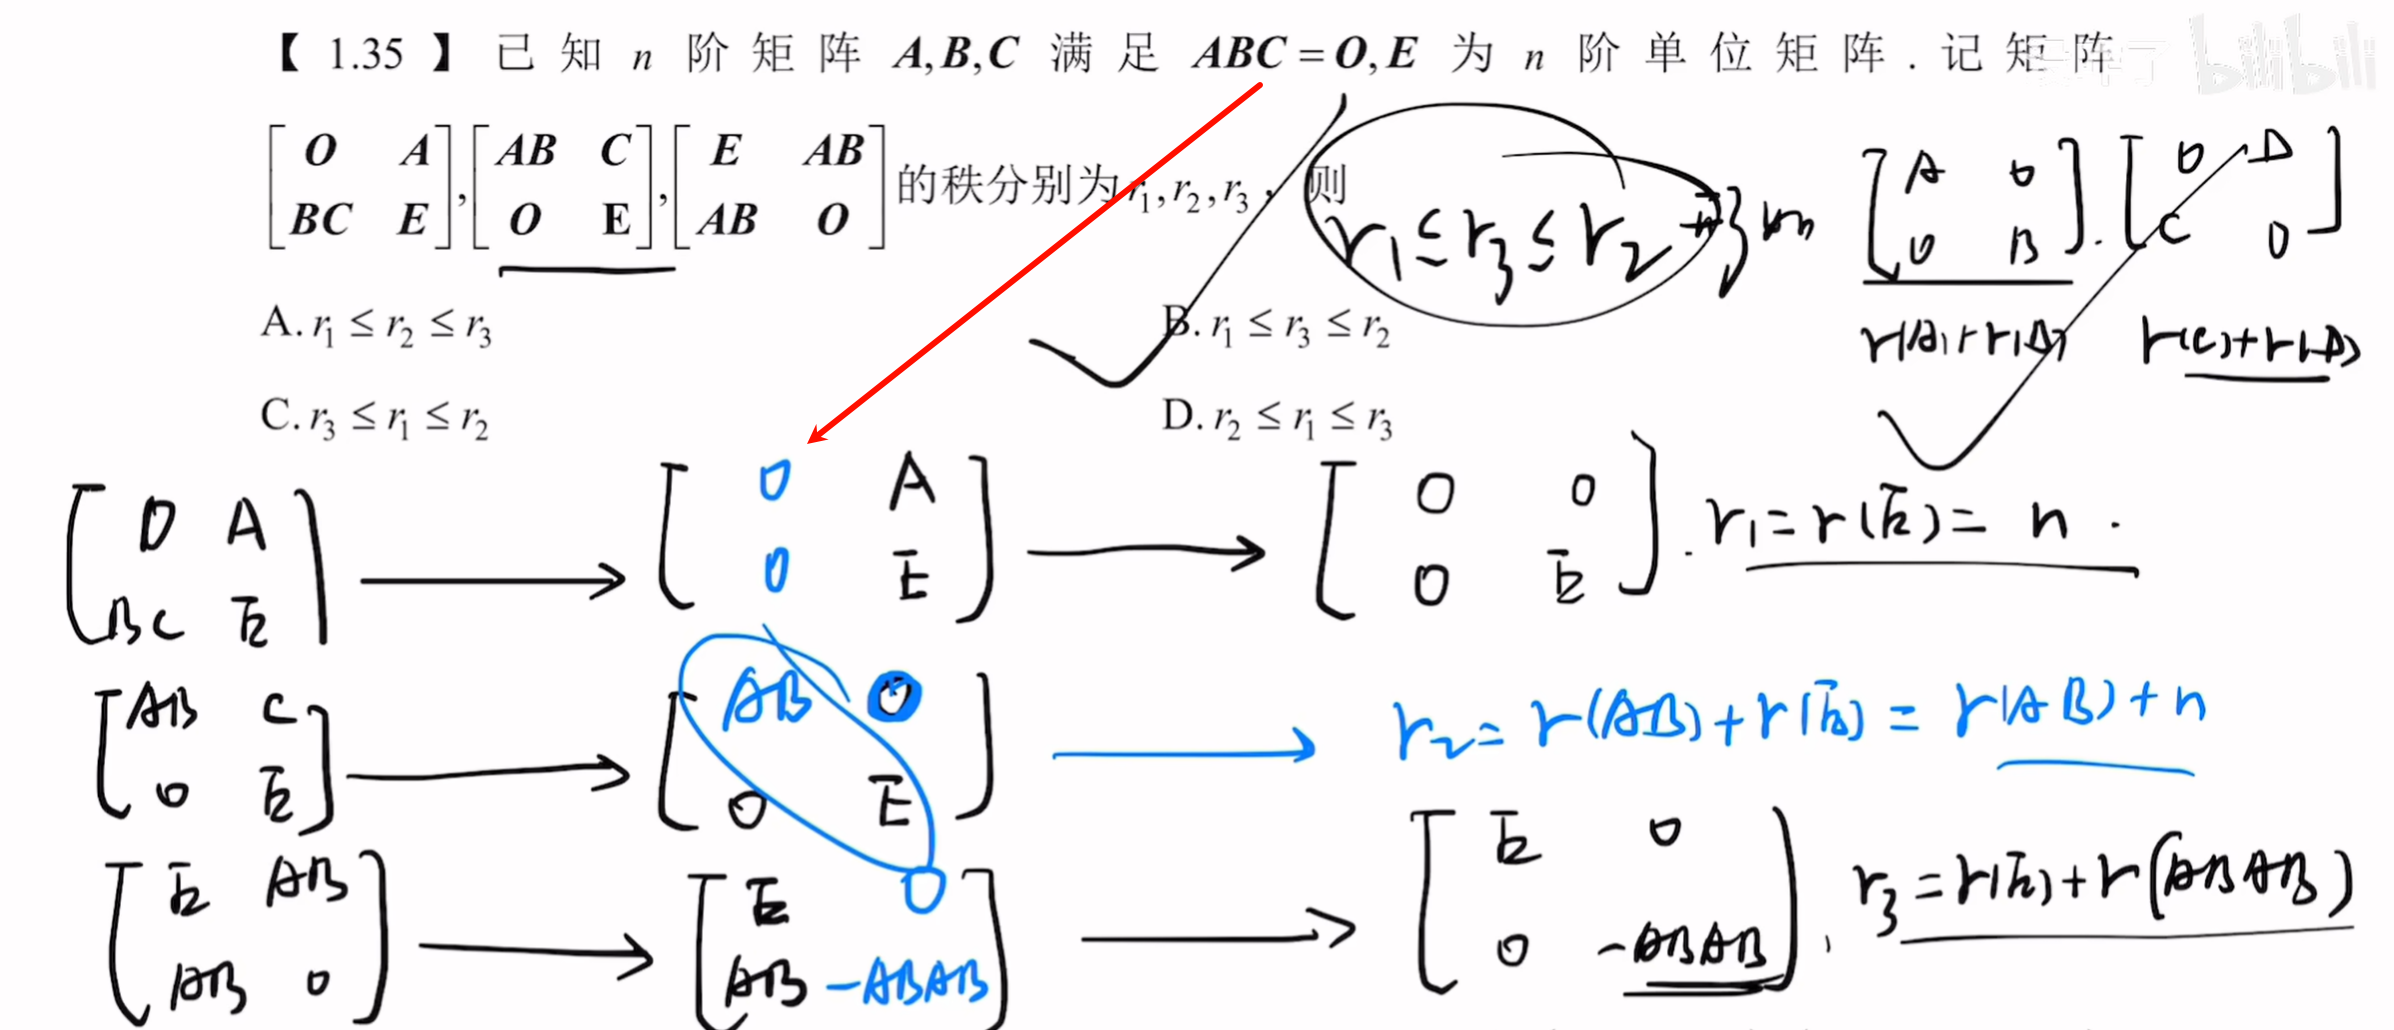 【1.35】已知 n 阶矩阵 A,B,C 满足 ABC = O,E 为 n 阶单位矩阵.记矩阵
bilibili
[O A; BC E],[AB C; O E],[E AB; AB O]的秩分别为 r₁,r₂,r₃,则
r₁ ≤ r₃ ≤ r₂
[A 0; 0 B].[0 D; C 0]
A. r₁ ≤ r₂ ≤ r₃
B. r₁ ≤ r₃ ≤ r₂
r(C)+r(D)
C. r₃ ≤ r₁ ≤ r₂
D. r₂ ≤ r₁ ≤ r₃
[0 A; BC E] → [0 A; 0 E] → [0 0; 0 E]. r₁=r(E)= n.
[AB C; 0 E] → [AB 0; 0 E] → r₂= r(AB)+r(E) = r(AB)+n
[E AB; AB 0] → [E 0; AB -ABAB] → [E 0; 0 -ABAB], r₃=r(E)+r(ABAB)